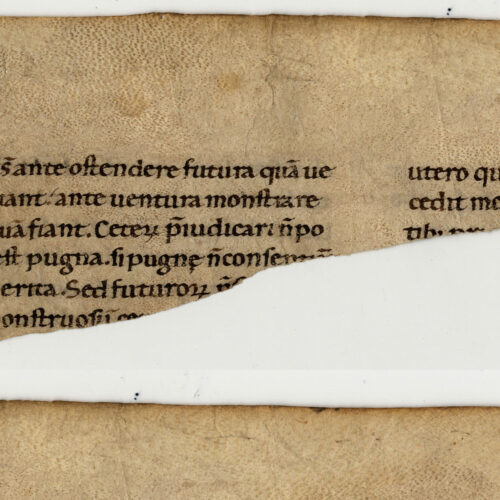 s̄ ante ostendere futura quā ue
iant. ante uentura monstrare
uā fiant. Ceteꝝ p̄iudicari n̄ po
est pugna. si pugnę n̄
erita. Sed futuroꝝ
onstruosi
utero qu
cedit mo
tibi